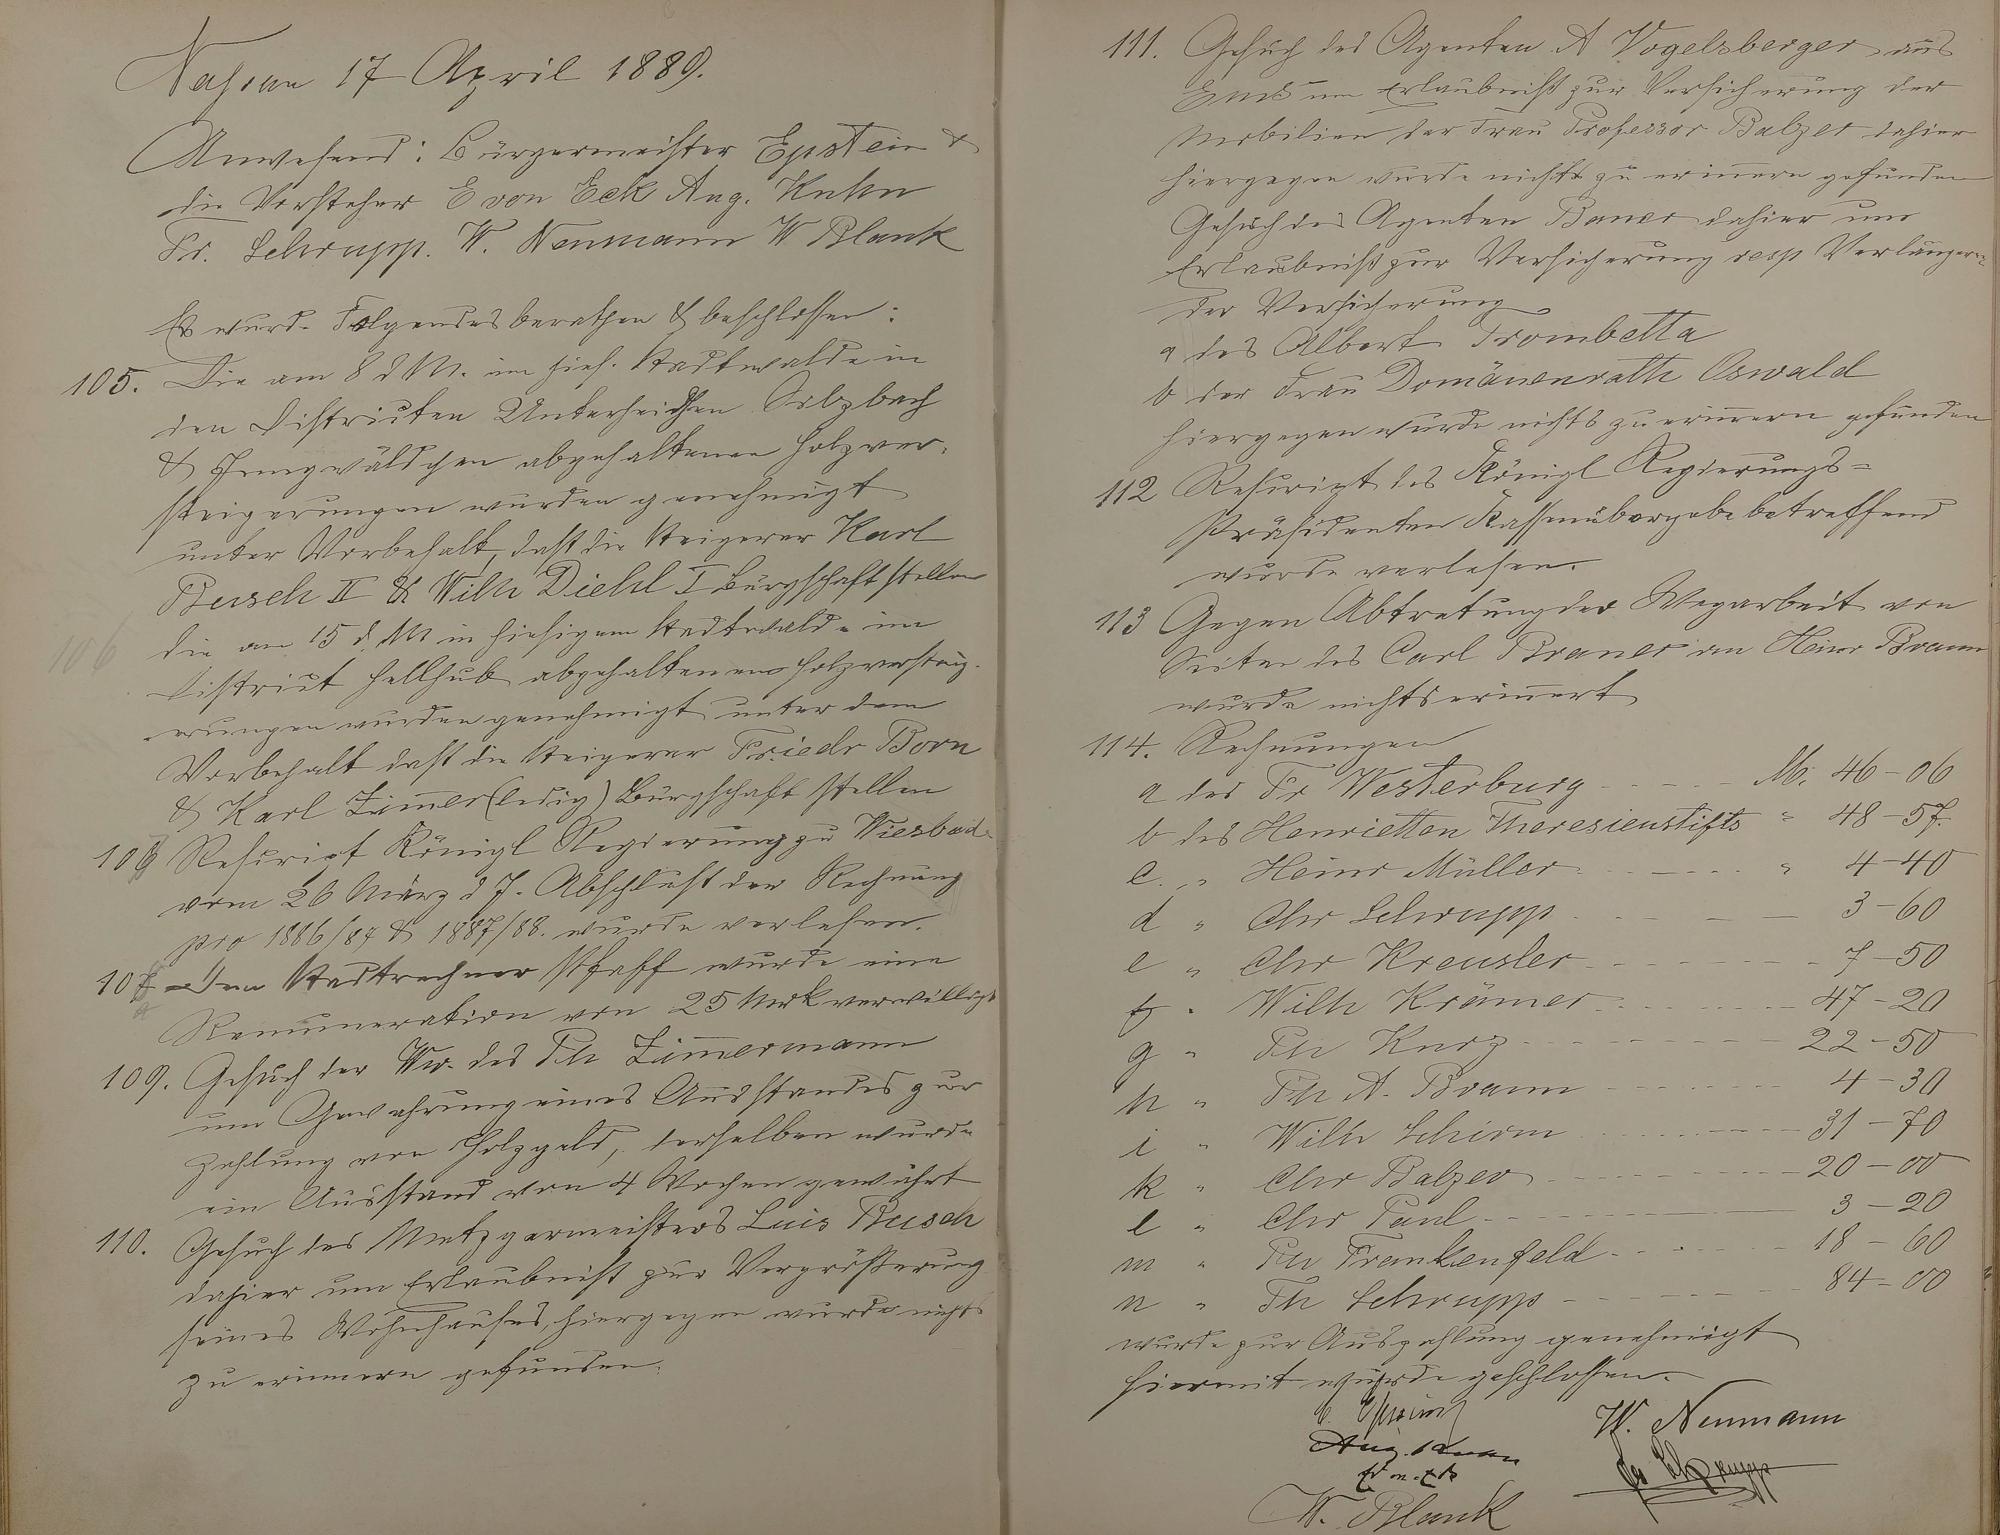 Nassau 17 April 1889.
Anwesend: Bürgermeister Epstein &
die Vorsteher E von Eck Aug. Kuhn
Fr. Schrupp. W. Neumann W Blank
Es wurde Folgendes berathen & beschlossen:
105. Die am 8 d M. im hies. Stadtwalde in
den Distrikten Unterheidchen Silzbach
& Jungwäldchen abgehaltenen Holzver-
steigerungen wurden genehmigt
unter Vorbehalt, daß die Steigerer Karl
Busch II & Wilh Diehl I Bürgschaft stellen
106
die am 15 d. M in hiesigem Stadtwalde im
District Hellhub abgehaltenen Holzversteig-
erungen wurden genehmigt unter dem
Vorbehalt daß die Steigerer Friedr Born
& Karl Zimmer (ledig) Bürgschaft stellen
107 Rescript Königl Regierung zu Wiesbade
vom 26 März d J. Abschluß der Rechnung
pro 1886/87 & 1887/88. wurde verlesen.
108 Dem Stadtrechner Pfaff wurde eine
Remuneration von 25 Mrk verwilligt
109. Gesuch der Ww. des Ph Zimmermann
um Gewahrung eines Ausstandes zur
Zahlung von Holzgeld, derselben wurde
ein Ausstand von 4 Wochen gewährt
110. Gesuch des Metzgermeisters Luis Busch
dahier um Erlaubniß zur Vergrößerung
seines Wohnhauses, hiergegen wurde nichts
zu erinnern gefunden.
111. Gesuch des Agenten A Vogelsberger aus
Ems um Erlaubniß zur Versicherung der
Mobilien der Frau Professor Balzer dahier
hiergegen wurde nichts zu erinnern gefunden
Gesuch des Agenten Bauer dahier um
Erlaubniß zur Versicherung resp Verlänger
der Versicherung
a des Albert Trombetta
b der Frau Domänenrath Oswald
hiergegen wurde nichts zu erinnern gefunden
112 Rescript des Königl Regierungs-
Präsidenten Kassenübergabe betreffend
wurde verlesen.
113 Gegen Abtretung der Wegarbeit von
Seiten des Carl Braner an Heinr Braun
wurde nichts erinnert
114. Rechnungen
a des Fr Westerburg M. 46-06
b des Henrietten Theresienstifts " 48-57.
c. " Heinr Müller " 4-40
d " Chr Schrupp 3-60
e " Chr Kreusler 7-50
f " Wilh Krämer 47-20
g " Ph Kurz 22-50
h " Ph A. Braun 4-30
i " Wilh Schirm 31-70
k " Chr Balzer 20-00
l " Chr Paul 3-20
m " Ph Frankenfeld 18-60
n " Ph Schrupp 84-00
wurde zur Auszahlung genehmigt
Hiermit wurde geschlossen.
Epstein
W. Neumann
Aug. Kuhn
Fr Schrupp
E von Eck
W. Blank